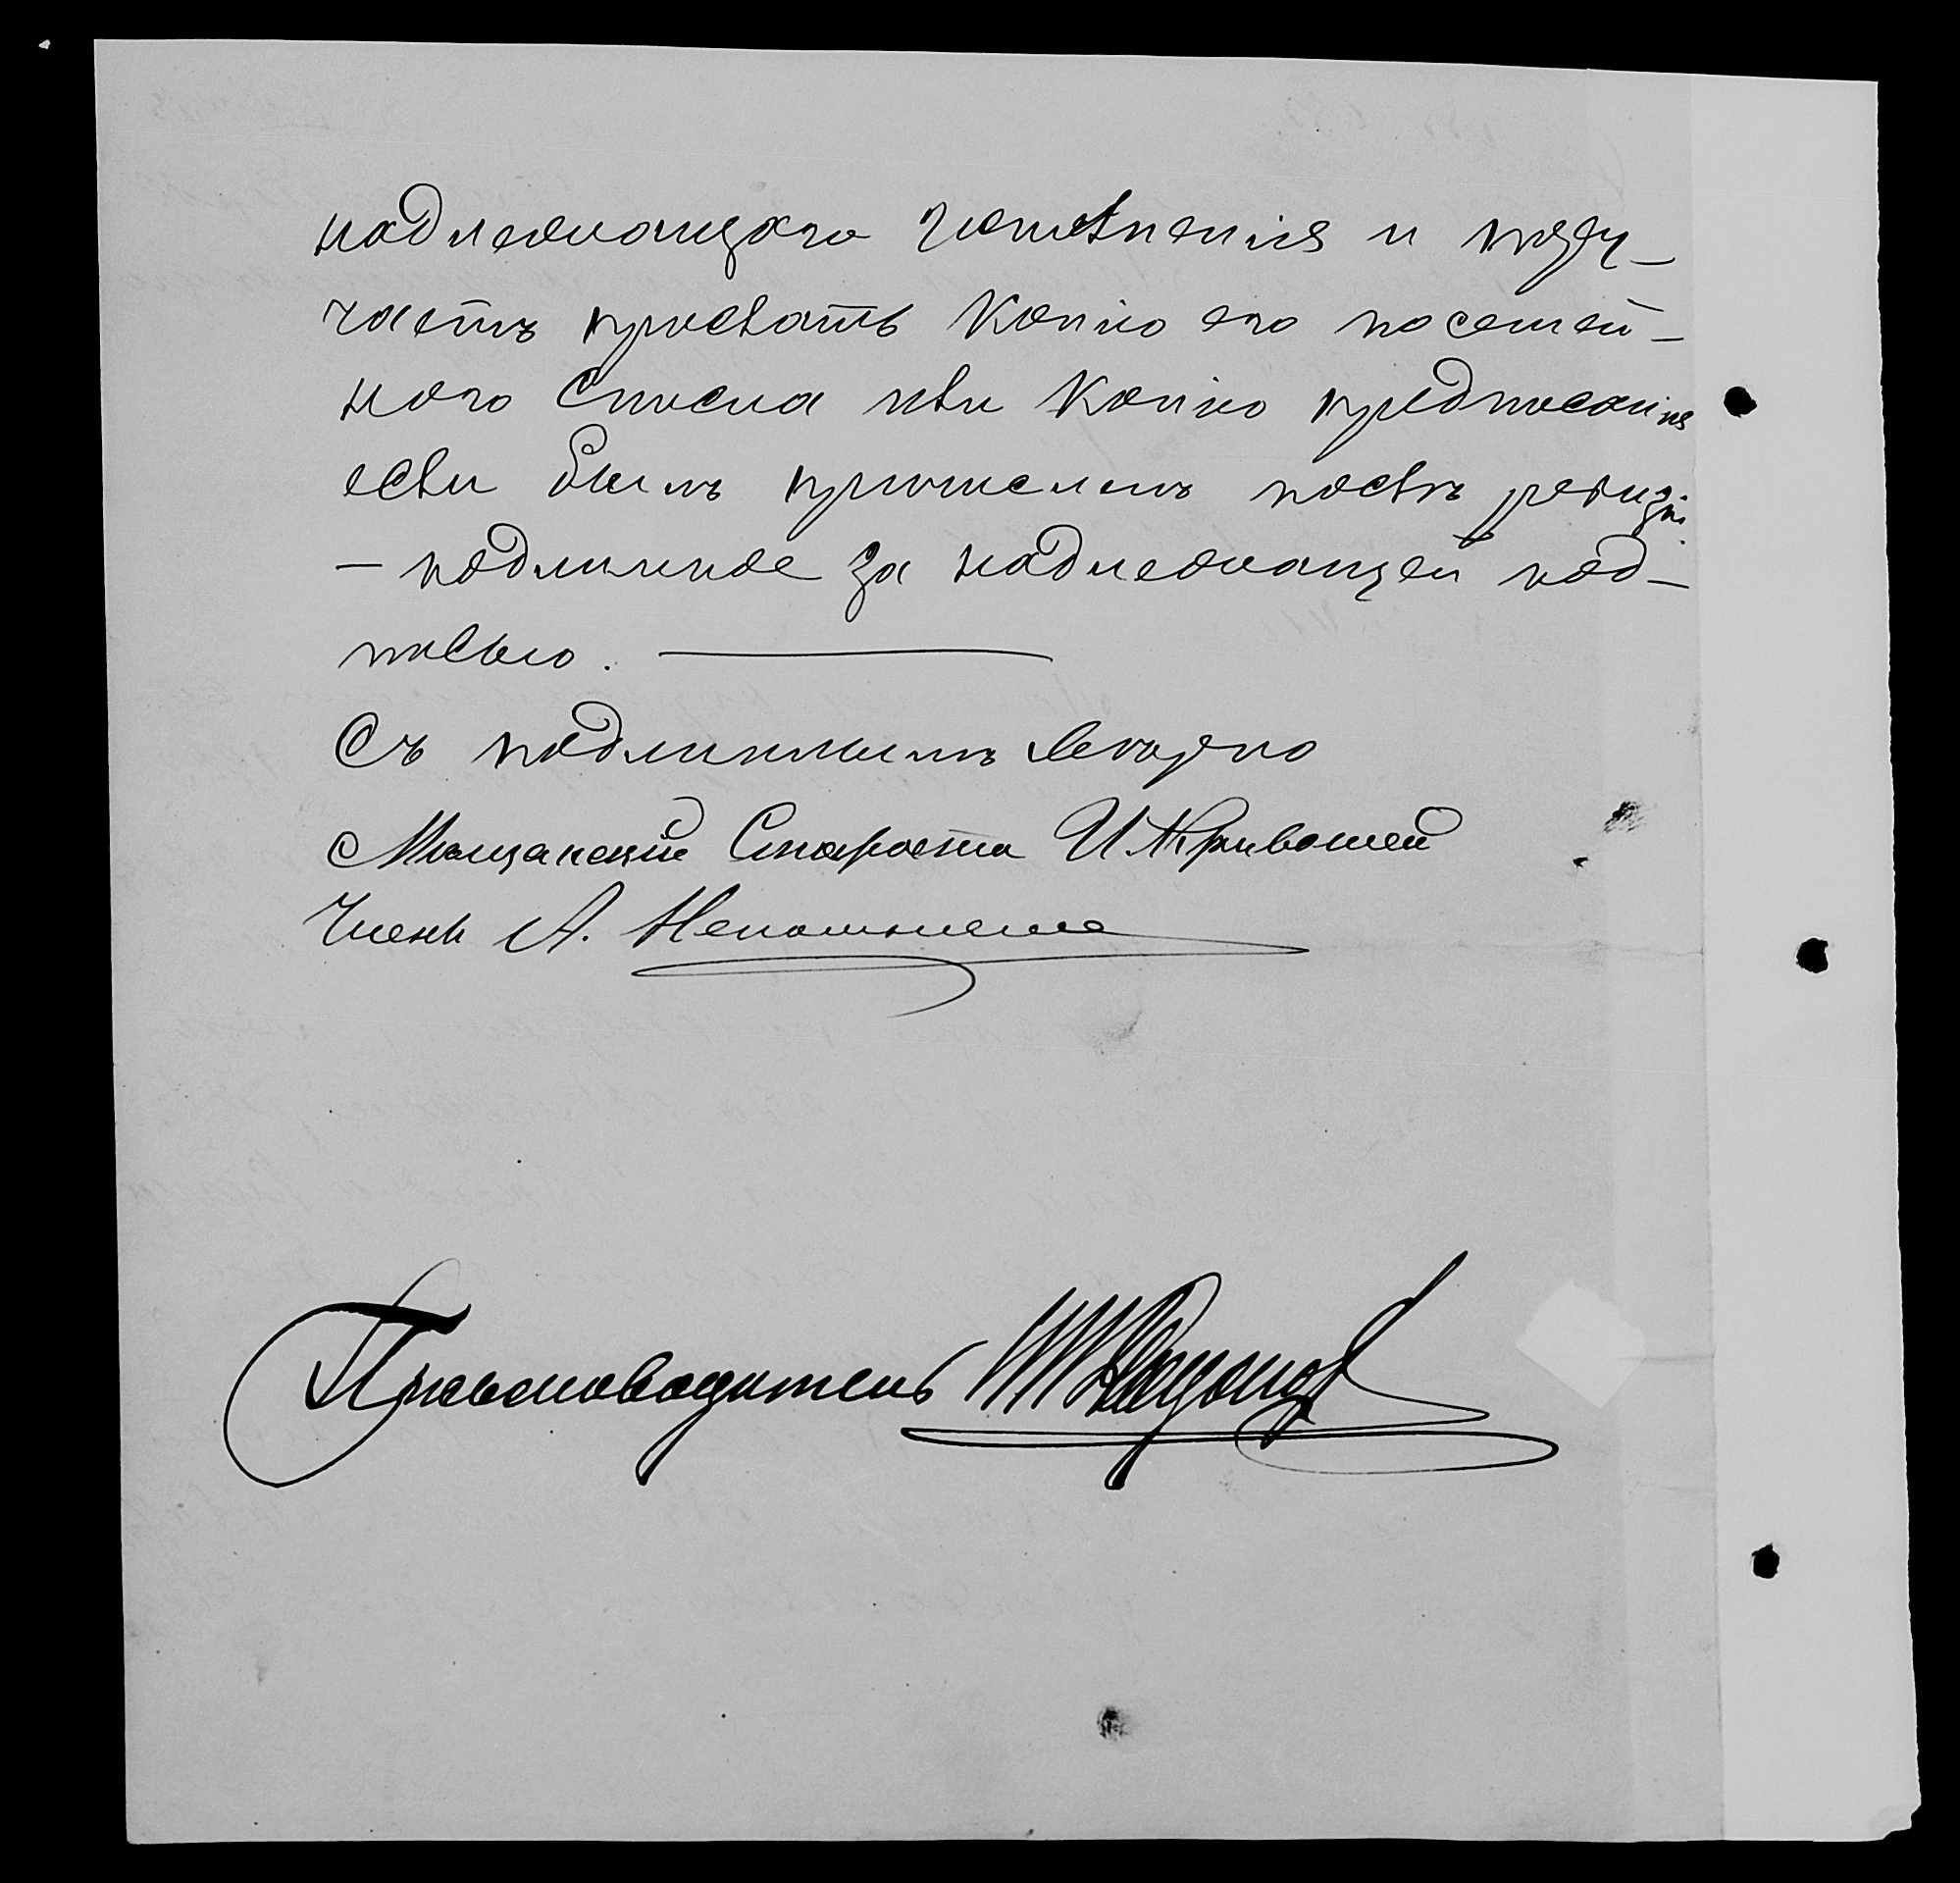 надлежащаго исполненія и
часть прислать копію его посемей-
наго списка или копію предписанія
если былъ причисленъ послѣ ревизіи
— подлинное за надлежащей под-
писью.
Съ подлиннымъ вѣрно
Мѣщанскій Староста И. Кривошей
Членъ А.
Письмоводитель